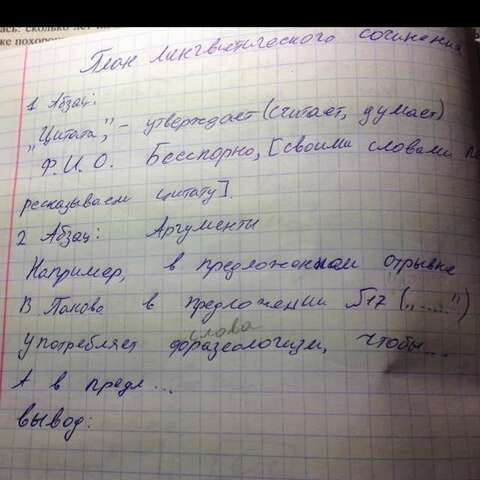 лась: сколько лет
же похоро
План лингвистического сочинения
1 Абзац:
"Цитата", - утверждает (считает, думает)
Ф.И.О. Бесспорно, [своими словами пе
ресказываем цитату].
2 Абзац: Аргументы
Например, в предложенном отрывке
В. Панова в предложении №17 ("......")
слова
Употребляет фразеологизм, чтобы...
А в предл...
вывод: